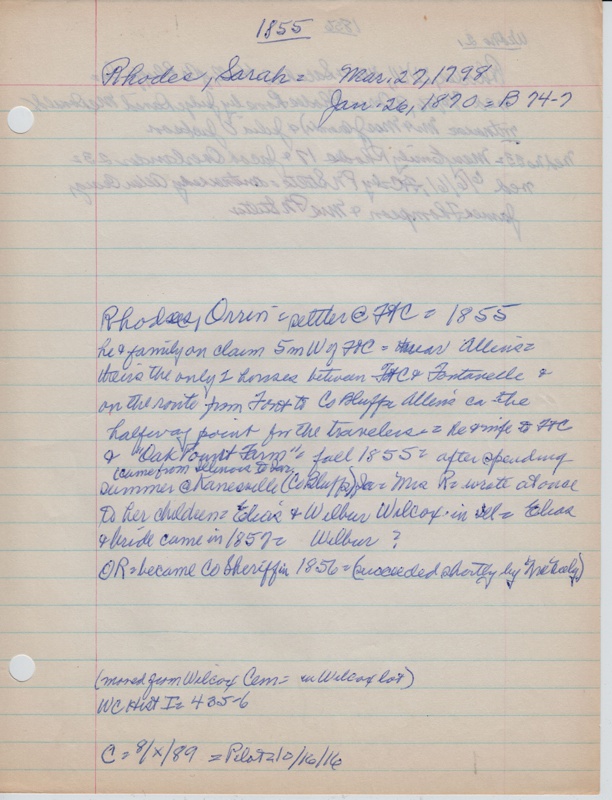 1855
Rhodes, Sarah = Mar. 27, 1798
Jan. 26, 1870 = B 74-7
Rhodes, Orrin = settler @ FtC = 1855
he & family on claim 5 m W of FtC = near Allens =
theirs the only 2 houses between FtC & Fontanelle &
on the route from Font to Co Bluffs Allens ca the
halfway point for the travelers = he & wife to FtC
& "Oak Point Farm" = fall 1855 = after spending
(came from Illinois to
summer @ Kanesville (Co Bluffs) Ia = Mrs R = wrote at once
to her children = Elias & Wilbur Wilcox in Ill = Elias
& bride came in 1857 = Wilbur ?
OR = became Co Sheriff in 1856 = (succeeded shortly by
(moved from Wilcox Cem = in Wilcox lot)
WC Hist I = 435-6
C = 8/x/89 = Pilot = 10/16/16